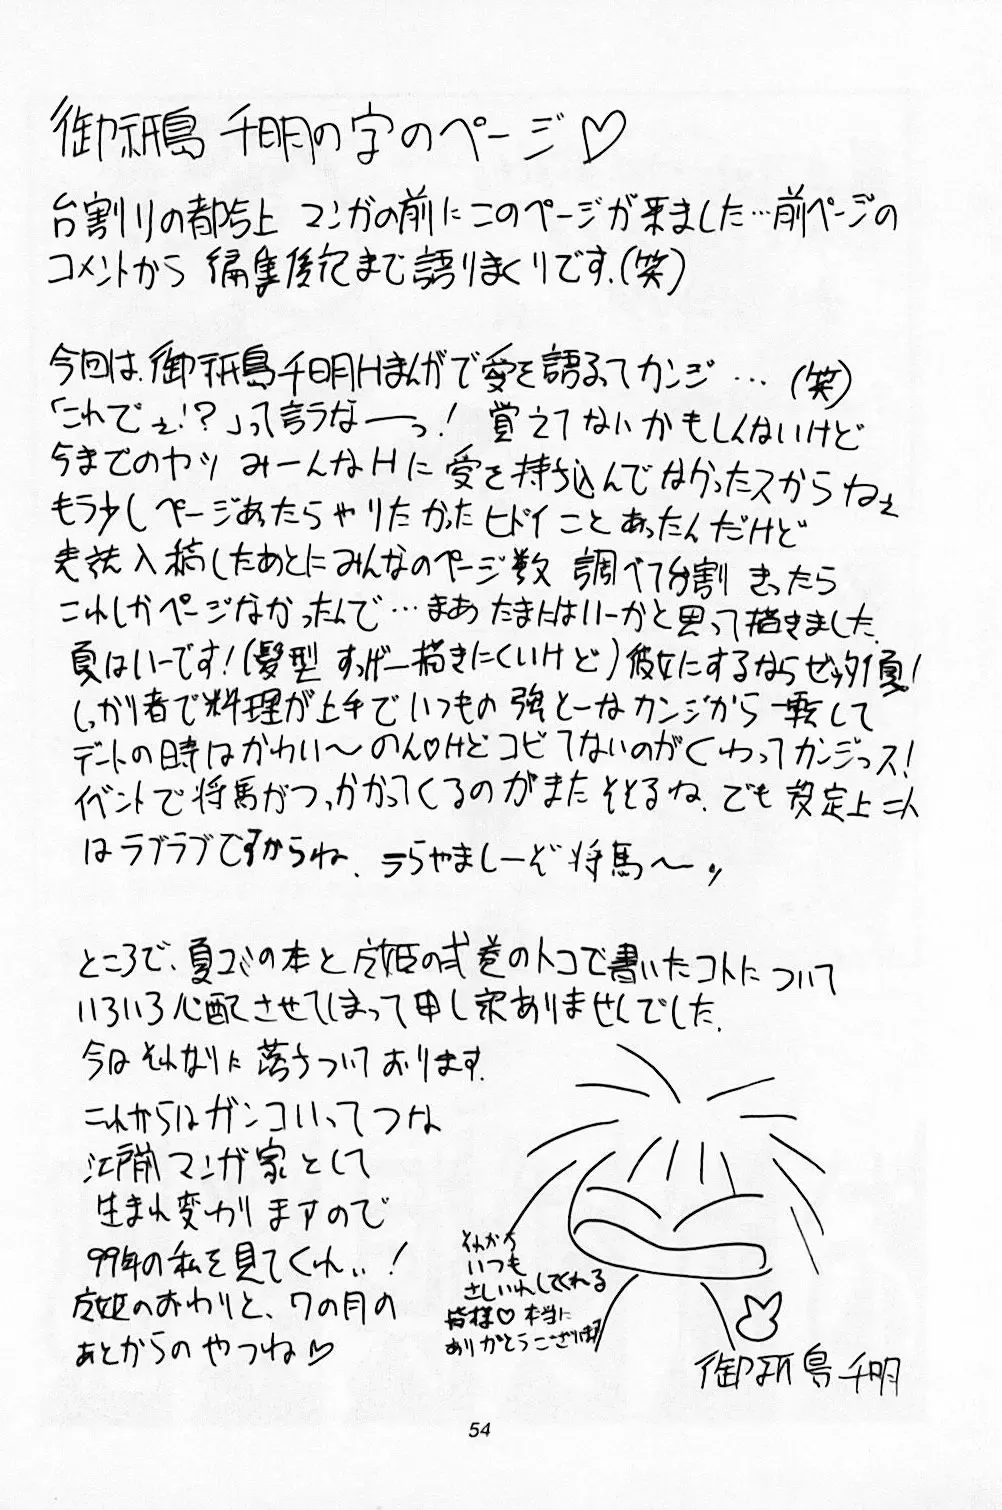 御祇島 千明の字のページ♡
台割りの都合上 マンガの前にこのページが来ました…前ページの
コメントから 編集後記まで語りまくりです.(笑)
今回は、御祇島千明Hまんがで愛を語るってカンジ…(笑)
「これでぇ!?」って言うなーっ! 覚えてないかもしんないけど
今までのヤツ みーんなHに愛を持ち込んでなかったスからねぇ
もう少しページあったらやりたかったヒドイことあったんだけど
表紙入稿したあとにみんなのページ数 調べて台割 きったら
これしかページなかったんで…まあ たまにはいーかと思って描きました.
夏はいーです!(髪型 すっげー描きにくいけど)彼女にするならゼッタイ夏!
しっかり者で料理が上手でいつもの 強とーなカンジから 一転して
デートの時はかわい〜のん♡けどコビてないのがくわってカンジっス!
イベントで将馬がつっかかってくるのがまたそそるね. でも 設定上二人
はラブラブですからね. うらやましーぞ将馬〜ッ
ところで、夏コミの本と の のトコで書いたコトについて
いろいろ心配させてしまって申し訳ありませんでした.
今はそれなりに落ちついております.
これからはガンコいってつな
江戸前マンガ家として
生まれ変わりますので
99年の私を見てくれぃ!
のおわりと、7の月の
あとからのやつね♡
それから
いつも
さしいれしてくれる
皆様♡本当に
ありがとうございます
御祇島千明
54